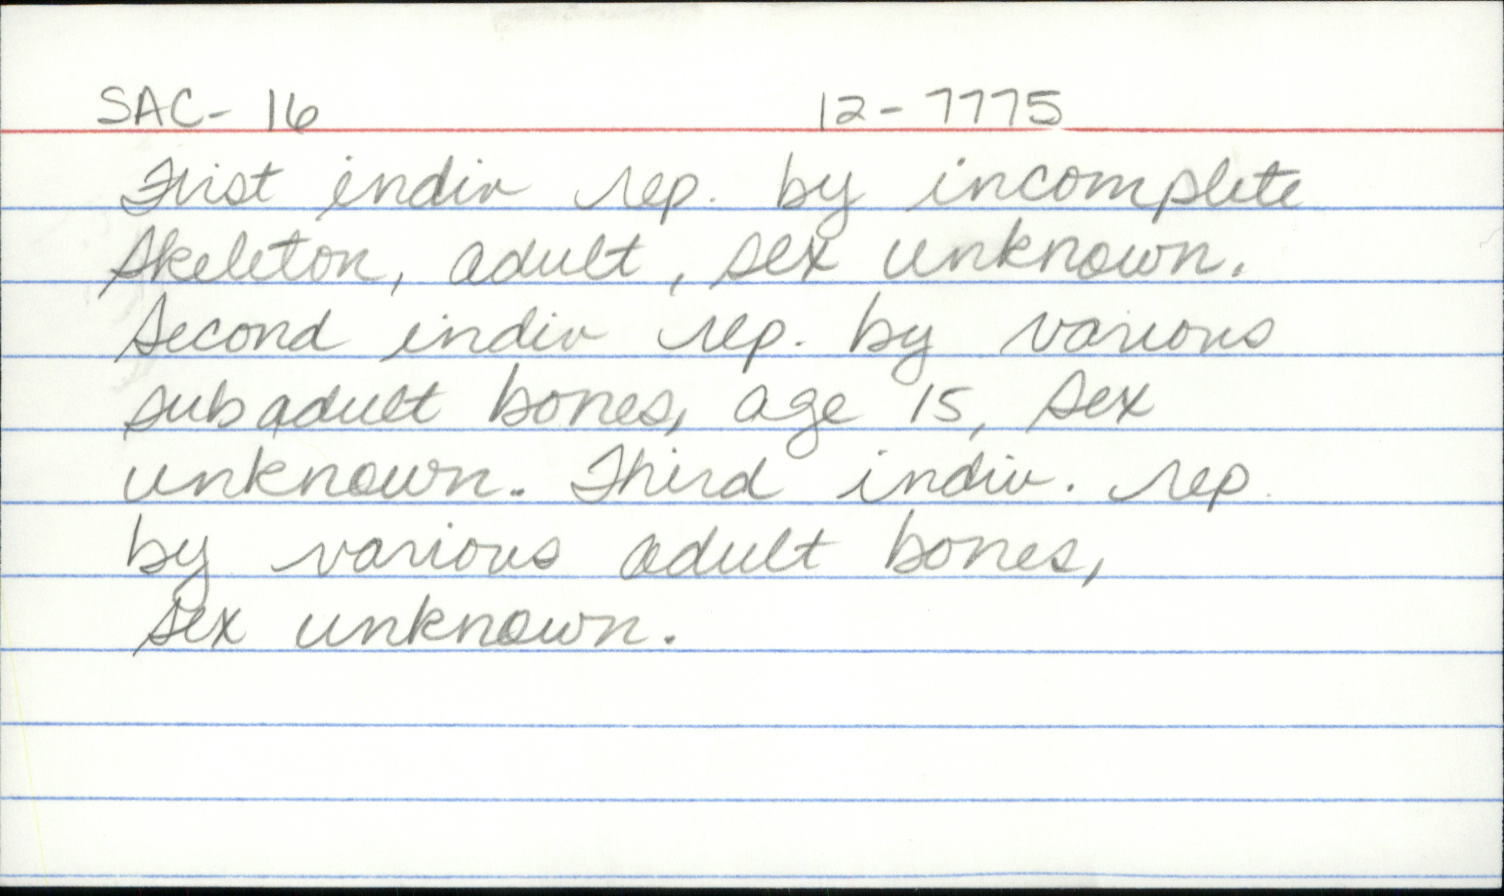 SAC- 16 12-7775
First indiv rep. by incomplete
skeleton, adult, sex unknown.
Second indiv rep. by various
subadult bones, age 15, sex
unknown. Third indiv. rep.
by various adult bones,
sex unknown.